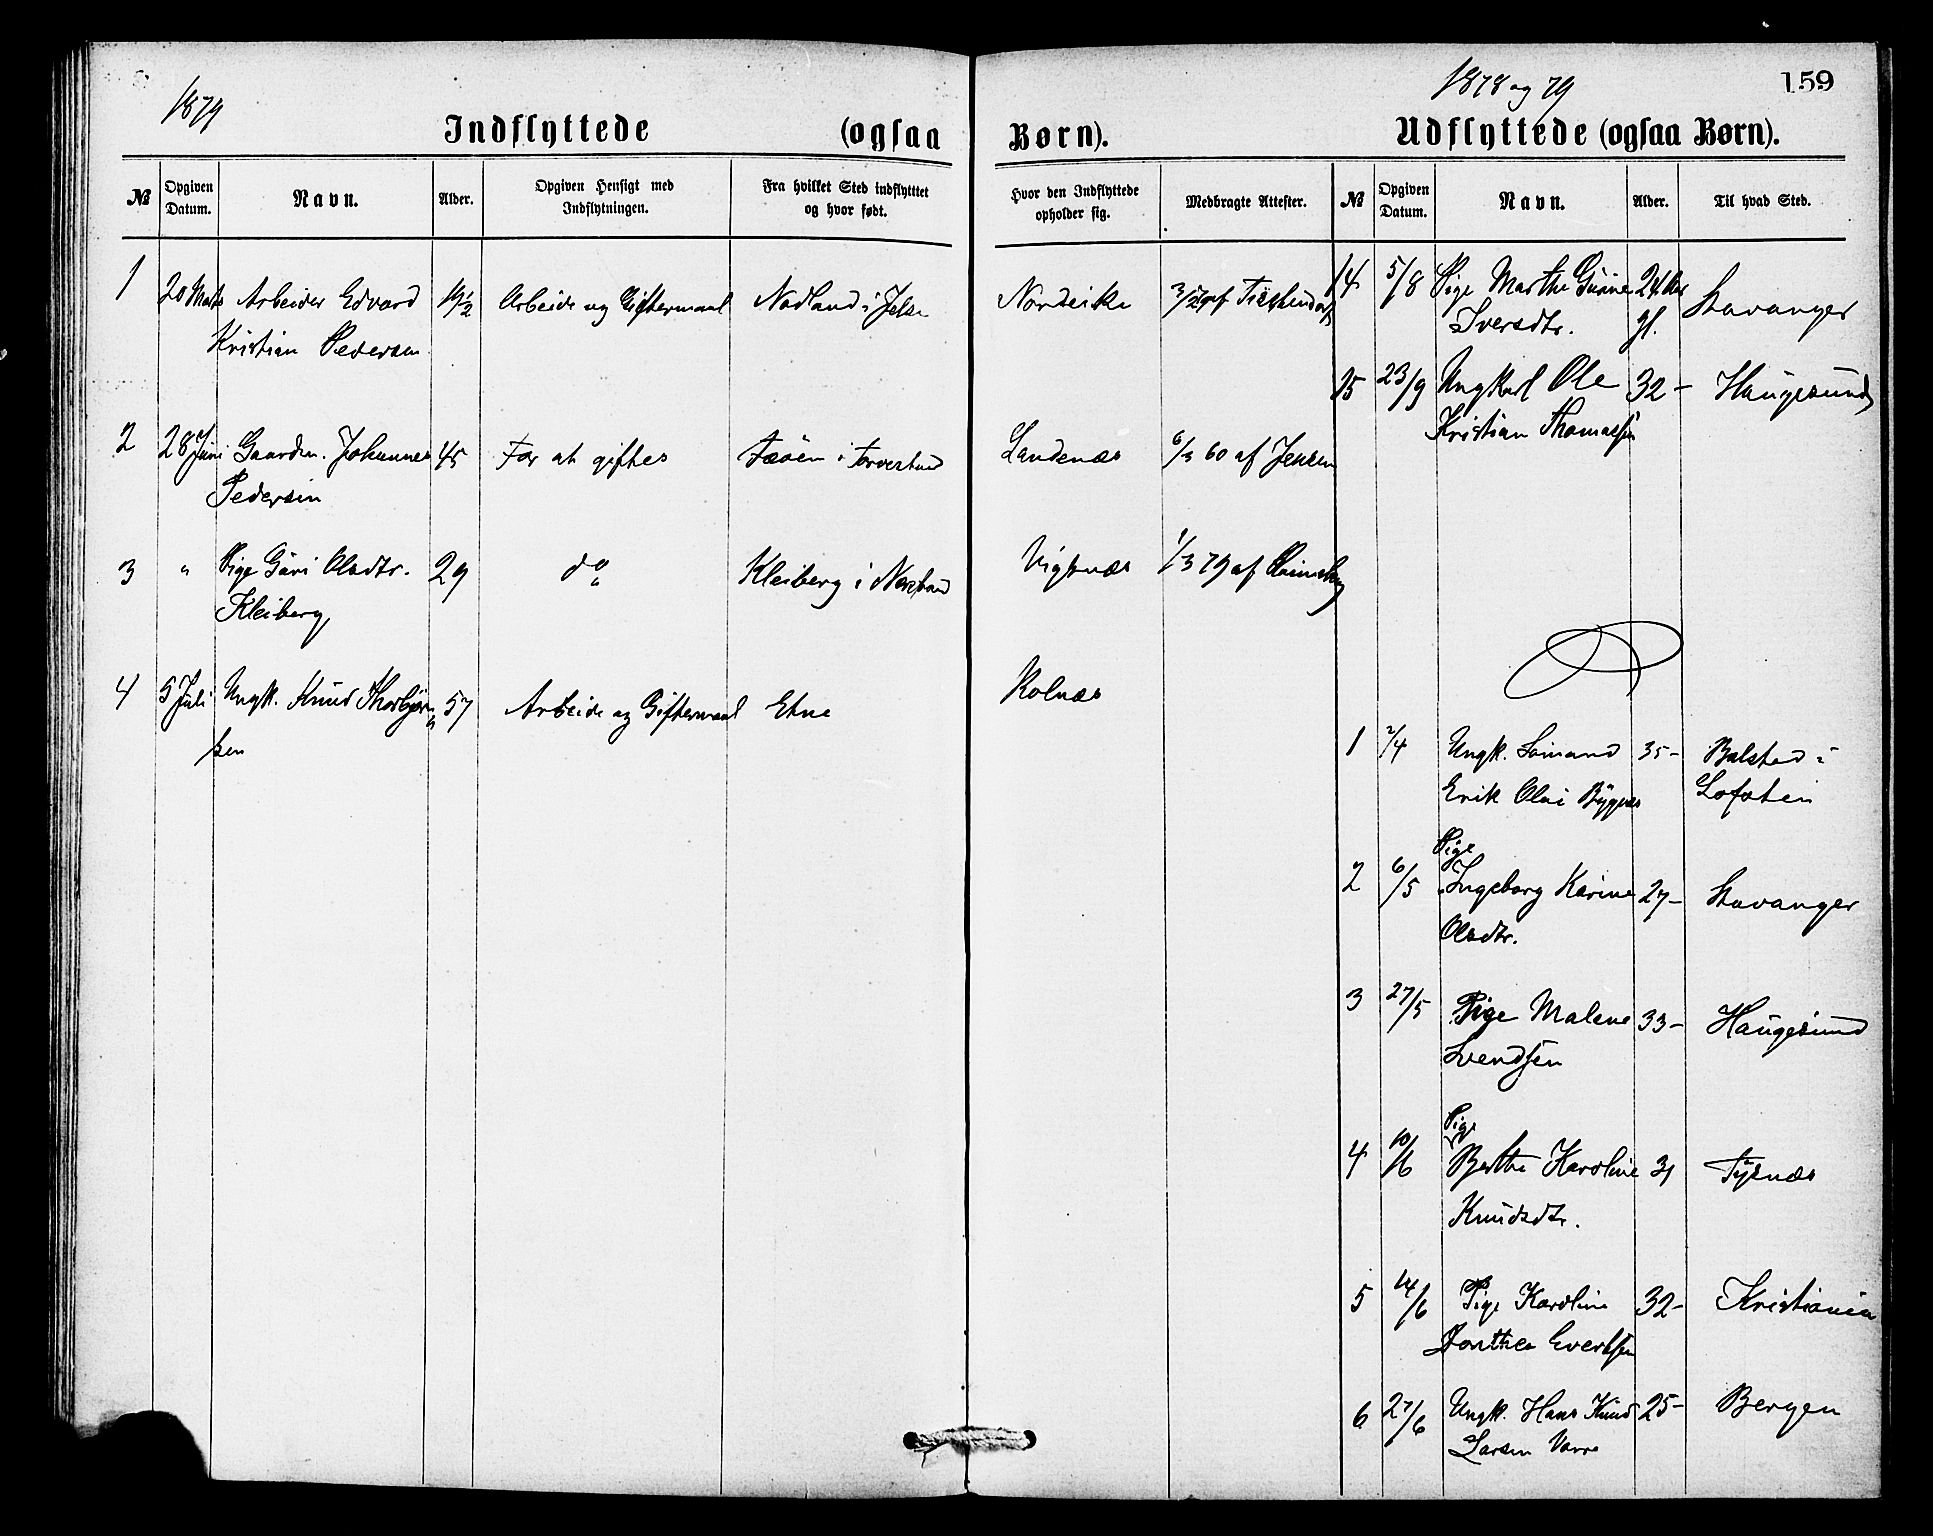 1879
Indflyttede (ogsaa Børn).
№ Opgiven Datum. Navn. Alder. Opgiven Hensigt med Indflytningen. Fra hvilket Sted indflytttet og hvor født. Hvor den Indflyttede opholder sig. Medbragte Attester.
1 20 Marts Arbeider Edvard Arbeide og Giftermaal Nadland i Jelse Nordvike
Kristian Pedersen
2 28 Juni Gaardm. Johannes 45 For at giftes i Torvestad Sandenæs 6/3 60 af Jensen
Pedersen
3 " Pige Guri Olsdtr. 29 do Kleiberg i Nærstrand Vigsnæs 1/3 79 af
Kleiberg
4 5 Juli Ungk. Knud Thorbjørn 57 Arbeide og Giftermaal Etne Kolnæs
sen
1878 og 79
159
Udflyttede (ogsaa Børn).
№ Opgiven Datum. Navn. Alder. Til hvad Sted.
14 5/8 Pige Marthe Gurine 24 Aar Stavanger
Iversdtr. gl.
15 23/9 Ungkarl Ole 32 - Haugesund
Kristian Thomassen
1 2/4 Ungk. Sømand 35 - Balstad i
Erik Olai Bygnes Lofoten
Pige
2 6/5 Ingeborg Karine 27 - Stavanger
Olsdtr.
3 27/5 Pige Malene 33 - Haugesund
Svendsen
Pige
4 10/6 Berthe Karoline 31 Tysnæs
Knudsdtr.
5 14/6 Pige Karoline 32 - Kristiania
Dorthea Evertsen
6 27/6 Ungk. Hans Knud 25 - Bergen
Larsen Varre